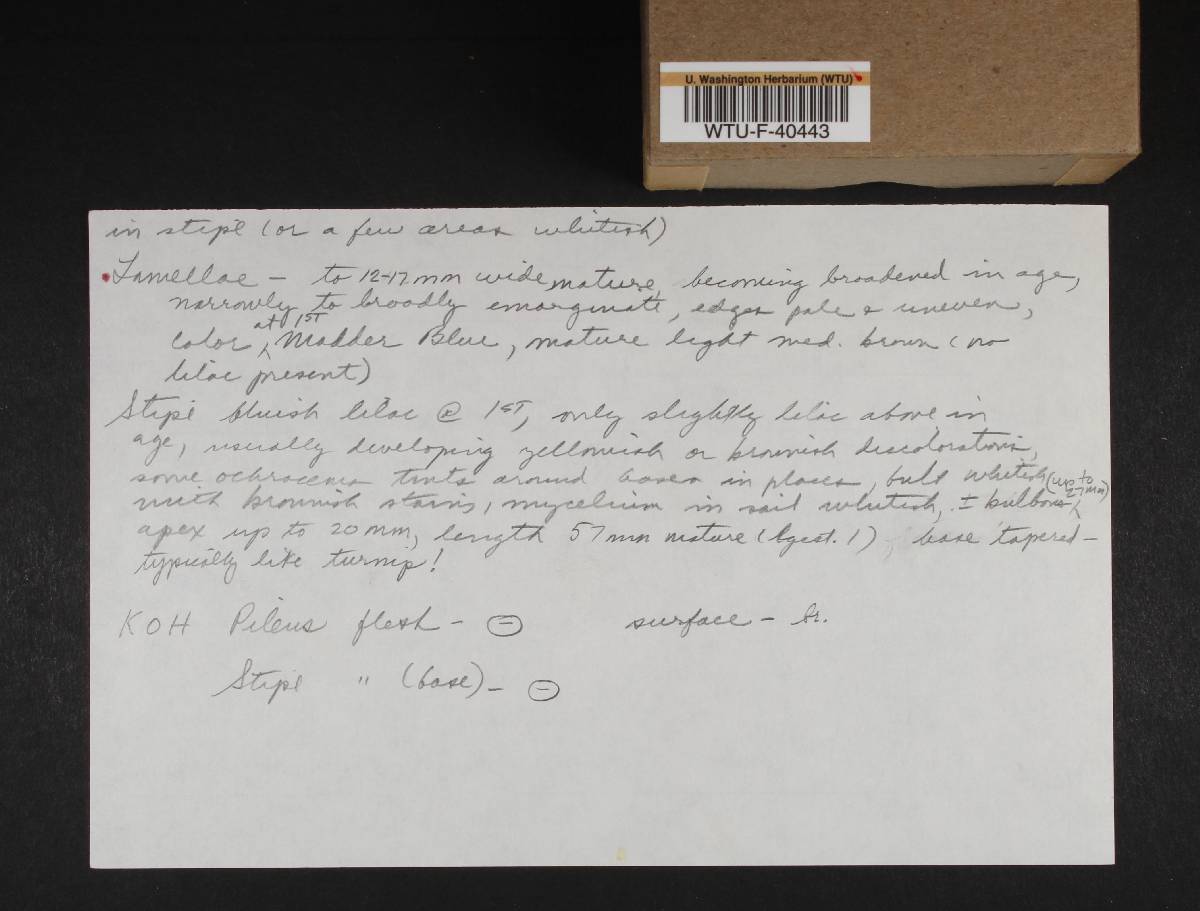 U. Washington Herbarium (WTU)
WTU-F-40443
in stipe (or a few areas whitish)
Lamellae – to 12-17 mm wide mature, becoming broadened in age,
narrowly to broadly emarginate, edges pale & uneven,
color at 1ST Madder Blue, mature light med. brown (no
lilac present)
Stipe bluish lilac @ 1ST, only slightly lilac above in
age, usually developing yellowish or brownish discolorations,
some ochraceous tints around bases in places, bulb whitish (up to 27 mm)
with brownish stains, mycelium in soil whitish, ± bulbous
apex up to 20 mm, length 57 mm mature (lgest. 1), base tapered –
typically like turnip!
KOH Pileus flesh – ⊖ surface – br.
Stipe " (base) – ⊖